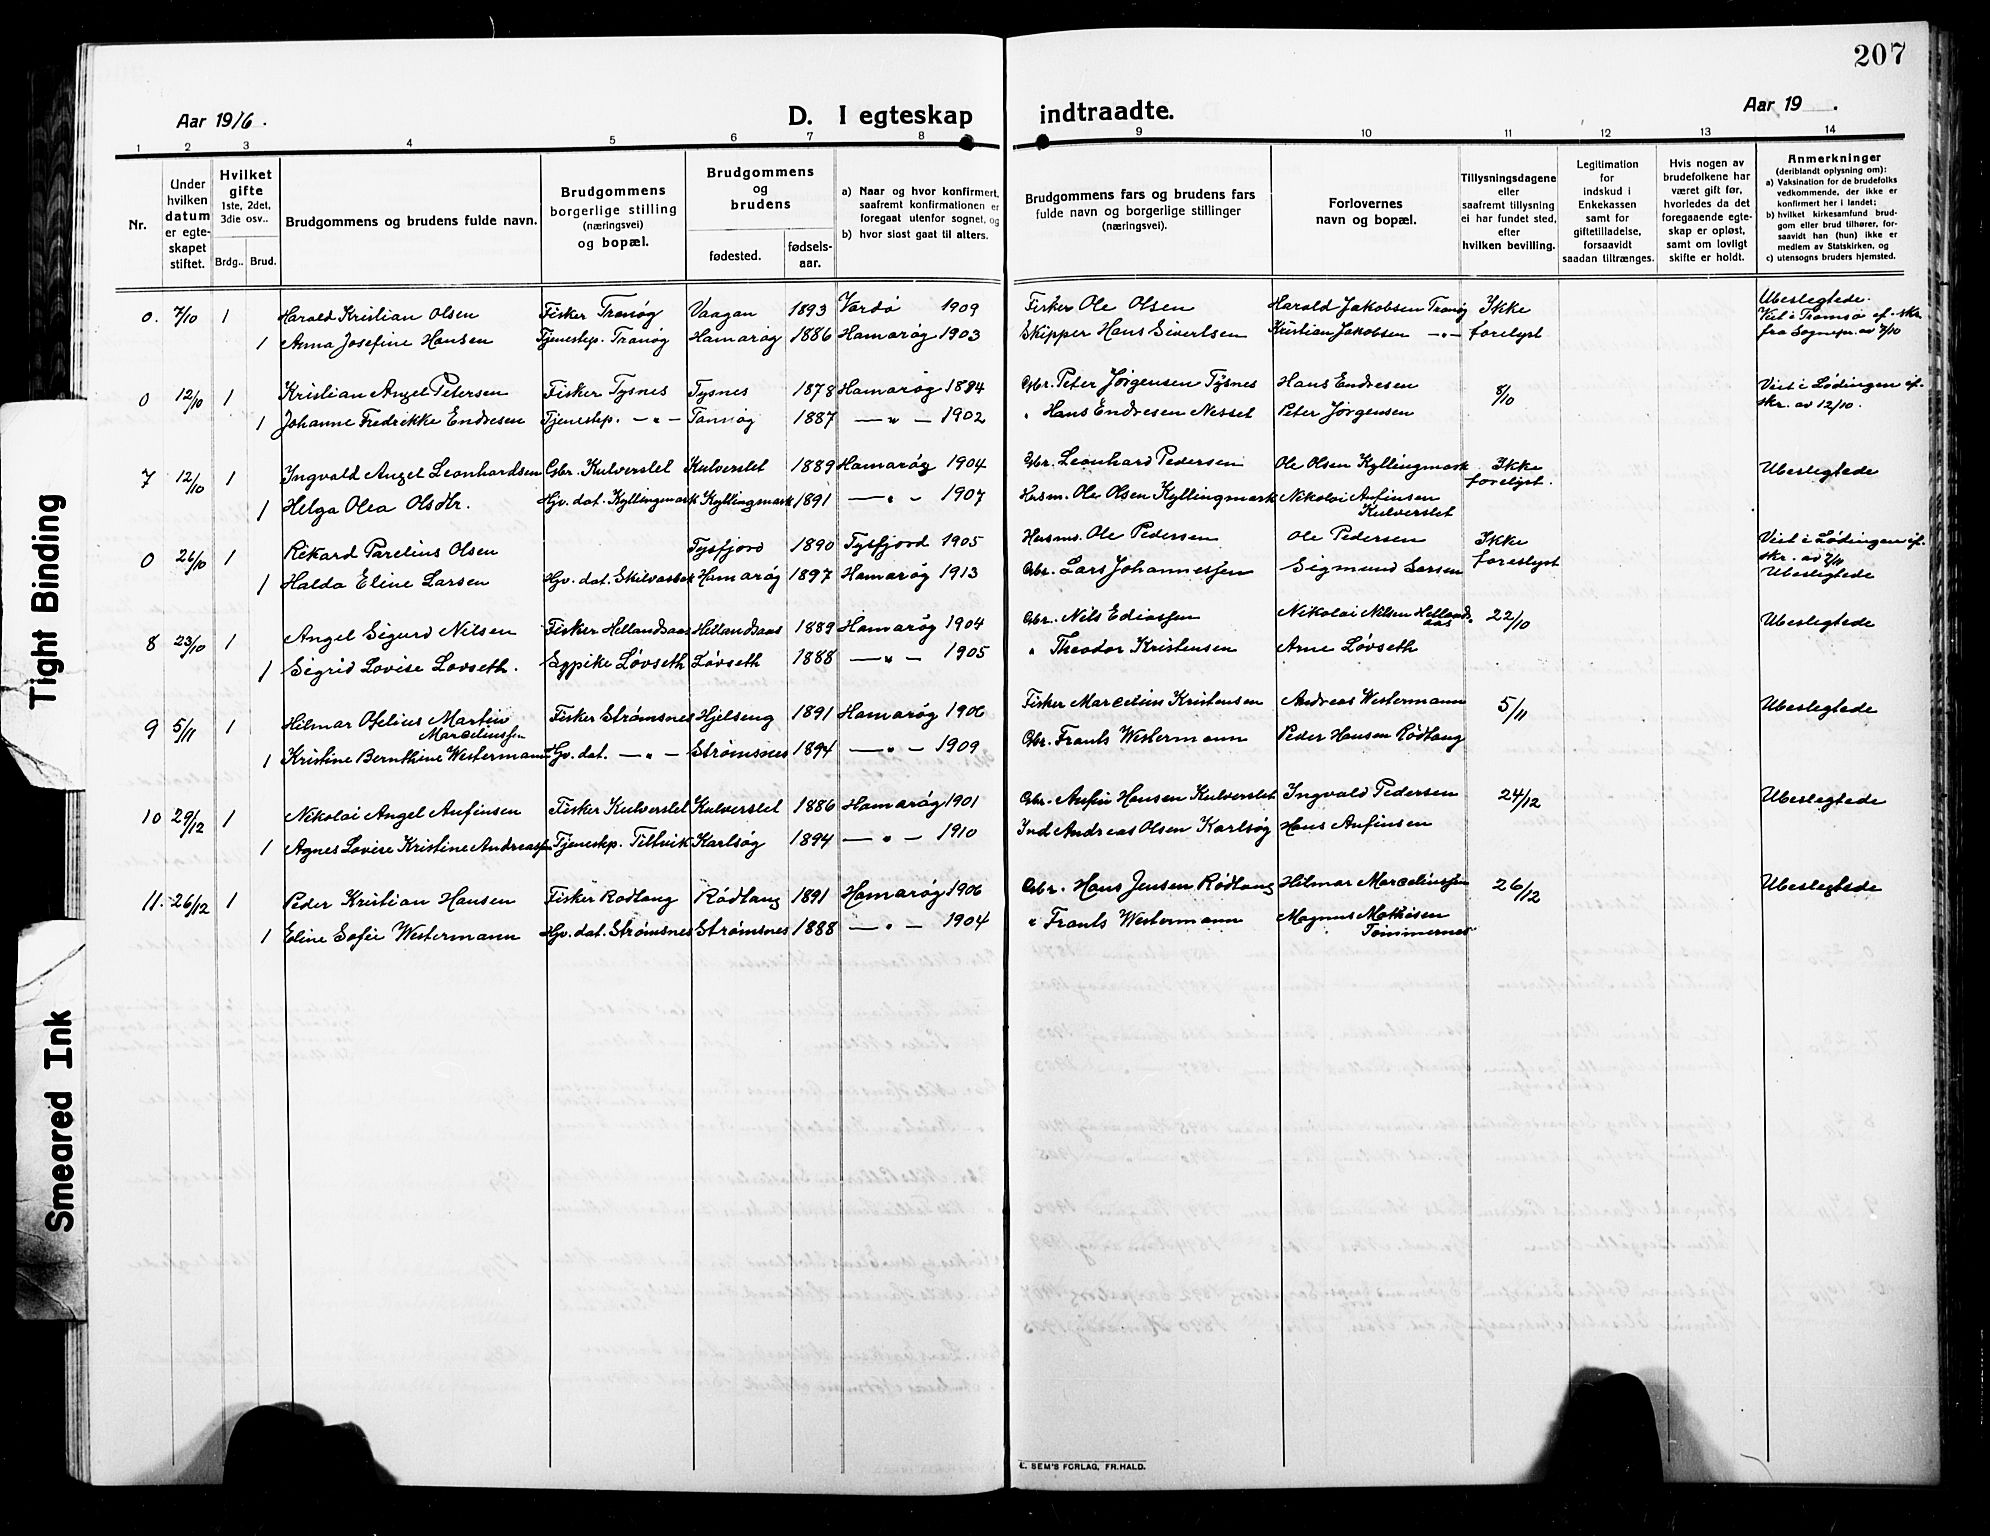 207
Aar 1916.
D. I egteskap indtraadte.
Aar 19 .
1 2 3 4 5 6 7 8 9 10 11 12 13 14
Nr.
Under hvilken datum er egte-skapet stiftet.
Hvilket gifte 1ste, 2det, 3die osv..
Brdg.. Brud.
Brudgommens og brudens fulde navn.
Brudgommens borgerlige stilling (næringsvei) og bopæl.
Brudgommens og brudens
fødested.
fødsels-aar.
a) Naar og hvor konfirmert, saafremt konfirmationen er foregaat utenfor sognet, og
b) hvor sidst gaat til alters.
Brudgommens fars og brudens fars fulde navn og borgerlige stillinger (næringsvei).
Forlovernes navn og bopæl.
Tillysningsdagene eller saafremt tillysning ei har fundet sted, efter hvilken bevilling.
Legitimation for indskud i Enkekassen samt for giftetilladelse, forsaavidt saadan tiltrænges.
Hvis nogen av brudefolkene har været gift før, hvorledes da det foregaaende egte-skap er opløst, samt om lovligt skifte er holdt.
Anmerkninger (deriblandt oplysning om):
a) Vaksination for de brudefolks vedkommende, der ikke er konfirmert her i landet;
b) hvilket kirkesamfund brud-gom eller brud tilhører, for-saavidt han (hun) ikke er medlem av Statskirken, og
c) utensogns bruders hjemsted.
0. 7/10 1 Harald Kristian Olsen Fisker Tranøy Vaagan 1893 Vardø 1909 Fisker Ole Olsen Harald Jakobsen Tranøy Ikke Ubeslegtede. Viet i Tromsø ef. skr.
1 Anna Josefine Hansen Tjenestep. Tranøy Hamarøy 1886 Hamarøy 1903 Skipper Hans Sivertsen Kristian Jakobsen -„- forelyst fra Sognepr. av 7/10
0 12/10 1 Kristian Angel Petersen Fisker Tysnes Tysnes 1878 Hamarøy 1894 Gbr. Peter Jørgensen Tysnes Hans Endresen 8/10 Viet i Lødingen ef.
1 Johanne Fredrikke Endresen Tjenestep. -„- Tranøy 1887 -„- 1902 „ Hans Endresen Nesset Peter Jørgensen skr. av 12/10.
7 12/10 1 Ingvald Angel Leonhardsen Gbr. Kulverslet Kulverslet 1889 Hamarøy 1904 Gbr. Leonhard Pedersen Ole Olsen Kyllingmark Ikke forelyst. Ubeslegtede
1 Helga Olea Olsdtr. Gv. dat. Kyllingmark Kyllingmark 1891 -„- 1907 Husm. Ole Olsen Kyllingmark Nikolai Anfinsen Kulverslet
0 26/10 1 Rikard Parelius Olsen Tysfjord 1890 Tysfjord 1905 Husm. Ole Pedersen Ole Pedersen Ikke Viet i Lødingen ef. skr. av 7/11
1 Halda Eline Larsen Gv. dat. Skilvassbk Hamarøy 1897 Hamarøy 1913 Gbr. Lars Johannessen Sigmund Larsen forelyst Ubeslegtede
8 23/10 1 Angel Sigurd Nilsen Fisker Hellandsaas Hellandsaas 1889 Hamarøy 1904 Gbr. Nils Ediassen Nikolai Nilsen Hellands-aas 22/10 Ubeslegtede
1 Sigrid Lovise Løvseth. Sypike Løvseth Løvseth 1888 -„- 1905 „ Theodor Kristensen Arne Løvseth
9 5/11 1 Hilmar Ofelius Martin Marcelinssen Fisker Strømsnes Hjelseng 1891 Hamarøy 1906 Fisker Marcelius Kristensen Andreas Westermann 5/11 Ubeslegtede
1 Kristine Bernthine Westermann Gv. dat. -„- Strømsnes 1894 -„- 1909 Gbr. Frants Westermann Peder Hansen Rødtang
10 29/12 1 Nikolai Angel Anfinsen Fisker Kulverslet Kulverslet 1886 Hamarøy 1901 Gbr. Anfin Hansen Kulverslet Ingvald Pedersen 24/12 Ubeslegtede
1 Agnes Lovise Kristine Andreassen Tjenestep. Tiltvik Karlsøy 1894 -„- 1910 Ind Andreas Olsen Karlsøy Hans Anfinsen
11. 26/12 1 Peder Kristian Hansen Fisker Rødtang Rødtang 1891 Hamarøy 1906 Gbr. Hans Jensen Rødtang Hilmar Marcelinssen 26/12 Ubeslegtede
1 Eline Sofie Westermann Gv. dat. Strømsnes Strømsnes 1888 -„- 1904 „ Frants Westermann Magnus Mathisen Tømmernes
E. SEM'S FORLAG, FR.HALD.
Tight Binding
Smeared Ink